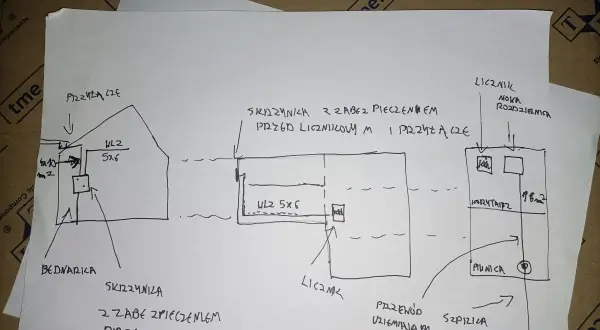 PRZYŁĄCZE
WLZ
5x6
4x10
m2
BEDNARKA
SKRZYNKA
Z ZABEZPIECZENIEM
SKRZYNICA Z ZABEZPIECZENIEM
PRZED LICZNIKOWYM I PRZYŁĄCZE
WLZ 5x6
LICZNIK
LICZNIK
NOWA
ROZDZIELNICA
PIWNICA
PRZEWÓD
SZPILKA
tme
T